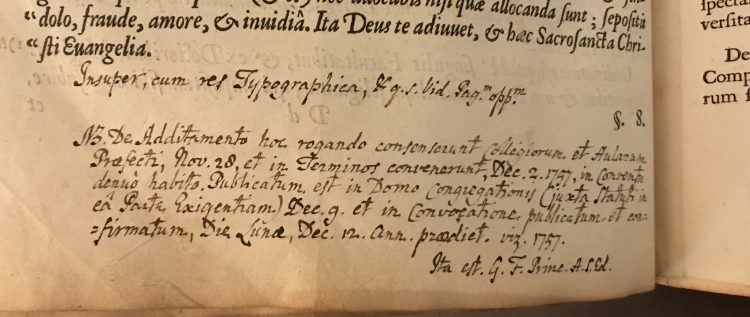 & hoc allocabis nisi quæ allocanda sunt; sepositis
“ dolo, fraude, amore, & invidiâ. Ita Deus te adiuvet, & hæc Sacrosancta Chri-
“ sti Evangelia.
Insuper, cum res Typographica, &c q. s. Vid. Pag.m opp.m
§. 8.
NB. De Additamento hoc rogando consenserunt Collegiorum et Aularum
Præfecti, Nov. 28, et in Terminos convenerunt, Dec. 2. 1757, in Conventu
denuò habito. Publicatum est in Domo Congregationis (juxta Statuti in
eâ Parte Exigentiam) Dec. 9. et in Convocatione publicatum et con-
=firmatum, Die Lunæ, Dec. 12. Ann. prædict. viz. 1757.
Ita est. G. F.
spectan
versita
De
Comp
rum f